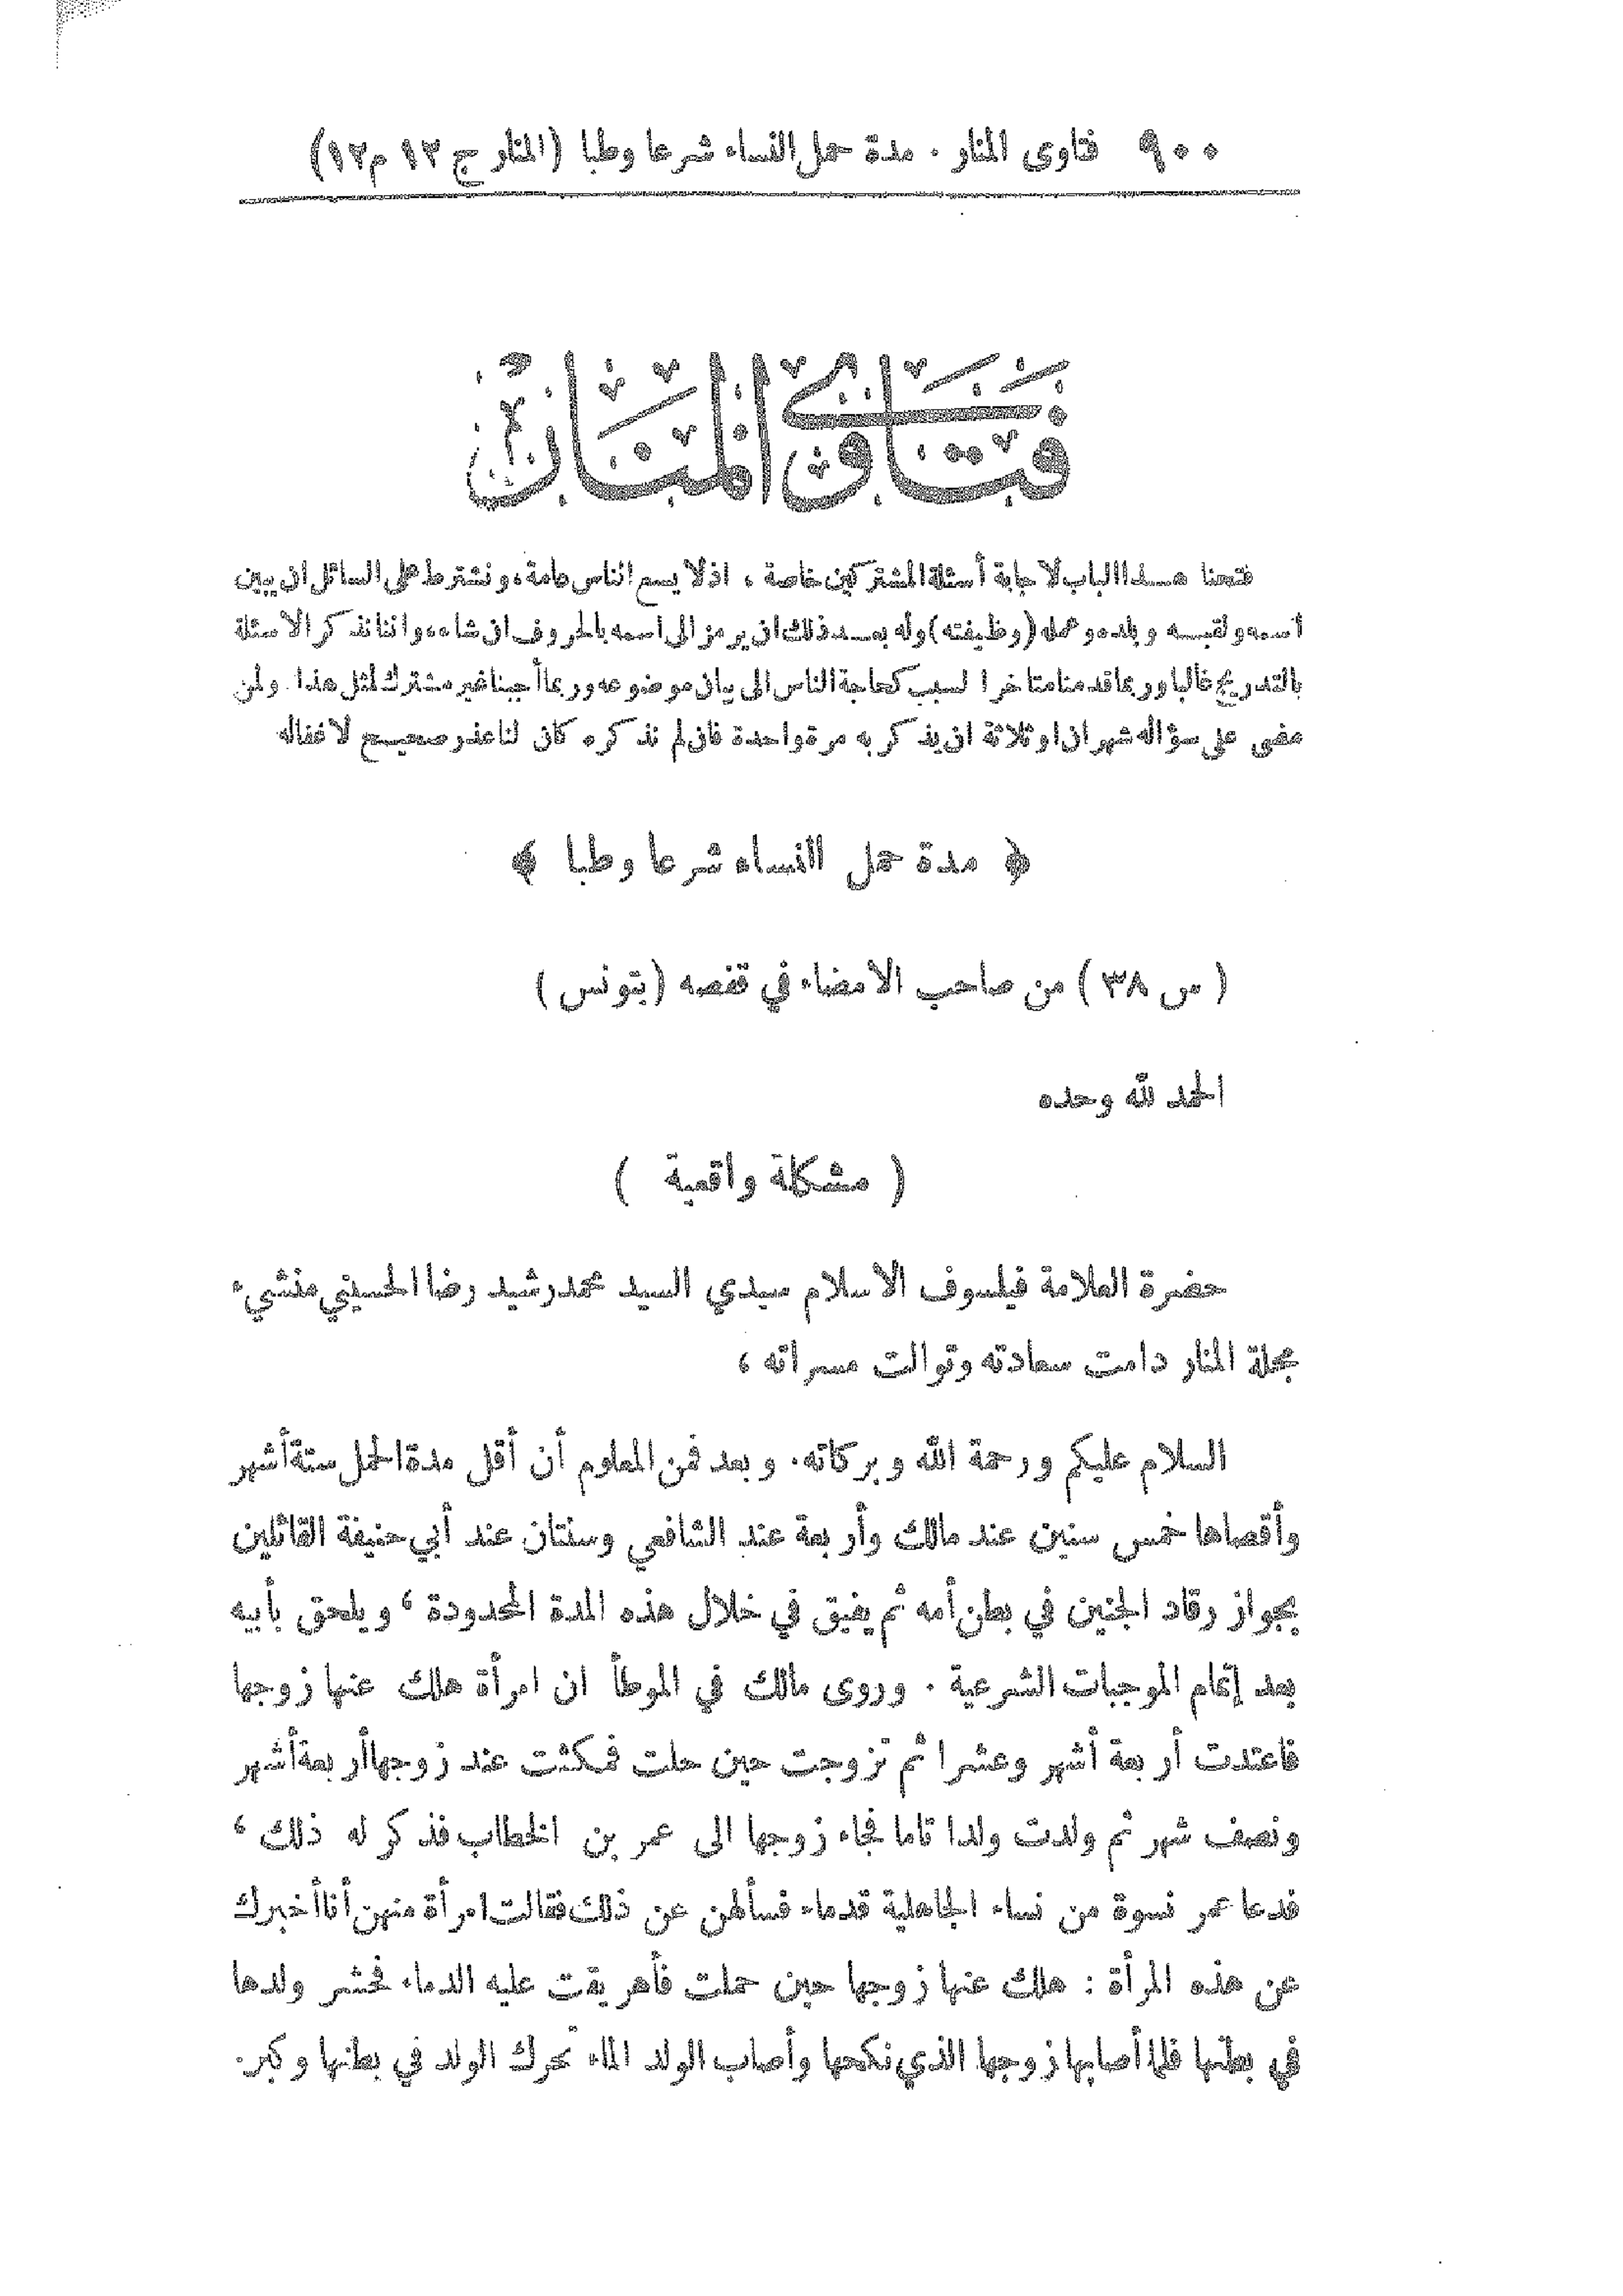 ٩٠٠ فتاوى المنار . مدة حمل النساء شرعا وطبا (المنار ج ١٢ م ١٢)
فتاوى المنار
فتحنا هـذا الباب لاجابة أسئلة المشتركين خاصة ، اذ لا يسع الناس عامة ، ونشترط على السائل ان يبين
اسمه ولقبـه وبلده وعمله (وظيفته) وله بعـد ذلك ان يرمز الى اسمه بالحروف ان شاء ، واننا نذكر الاسئلة
بالتدريج غالبا وربما قدمنا متاخرا لسبب كحاجة الناس الى بيان موضوعه وربما أجبنا غير مشترك لمثل هذا . ولمن
مضى على سؤاله شهران او ثلاثة ان يذكر به مرة واحدة فان لم نذكره كان لنا عذر صحيح لاغفاله
﴿ مدة حمل النساء شرعا وطبا ﴾
( س ٣٨ ) من صاحب الامضاء في قفصه (بتونس)
الحمد لله وحده
( مشكلة واقعية )
حضرة العلامة فيلسوف الاسلام سيدي السيد محمد رشيد رضا الحسيني منشيء
مجلة المنار دامت سعادته وتوالت مسراته ،
السلام عليكم ورحمة الله وبركاته. وبعد فمن المعلوم أن أقل مدة الحمل ستة أشهر
وأقصاها خمس سنين عند مالك وأربعة عند الشافعي وسنتان عند أبي حنيفة القائلين
بجواز رقاد الجنين في بطن أمه ثم يفيق في خلال هذه المدة المحدودة ، ويلحق بأبيه
بعد إتمام الموجبات الشرعية . وروى مالك في الموطأ ان امرأة هلك عنها زوجها
فاعتدت أربعة أشهر وعشرا ثم تزوجت حين حلت فمكثت عند زوجها أربعة أشهر
ونصف شهر ثم ولدت ولدا تاما فجاء زوجها الى عمر بن الخطاب فذكر له ذلك ،
فدعا عمر نسوة من نساء الجاهلية قدماء فسألهن عن ذلك فقالت امرأة منهن أنا أخبرك
عن هذه المرأة : هلك عنها زوجها حين حملت فأهريقت عليه الدماء فحشر ولدها
في بطنها فلما أصابها زوجها الذي نكحها وأصاب الولد الماء تحرك الولد في بطنها وكبر.